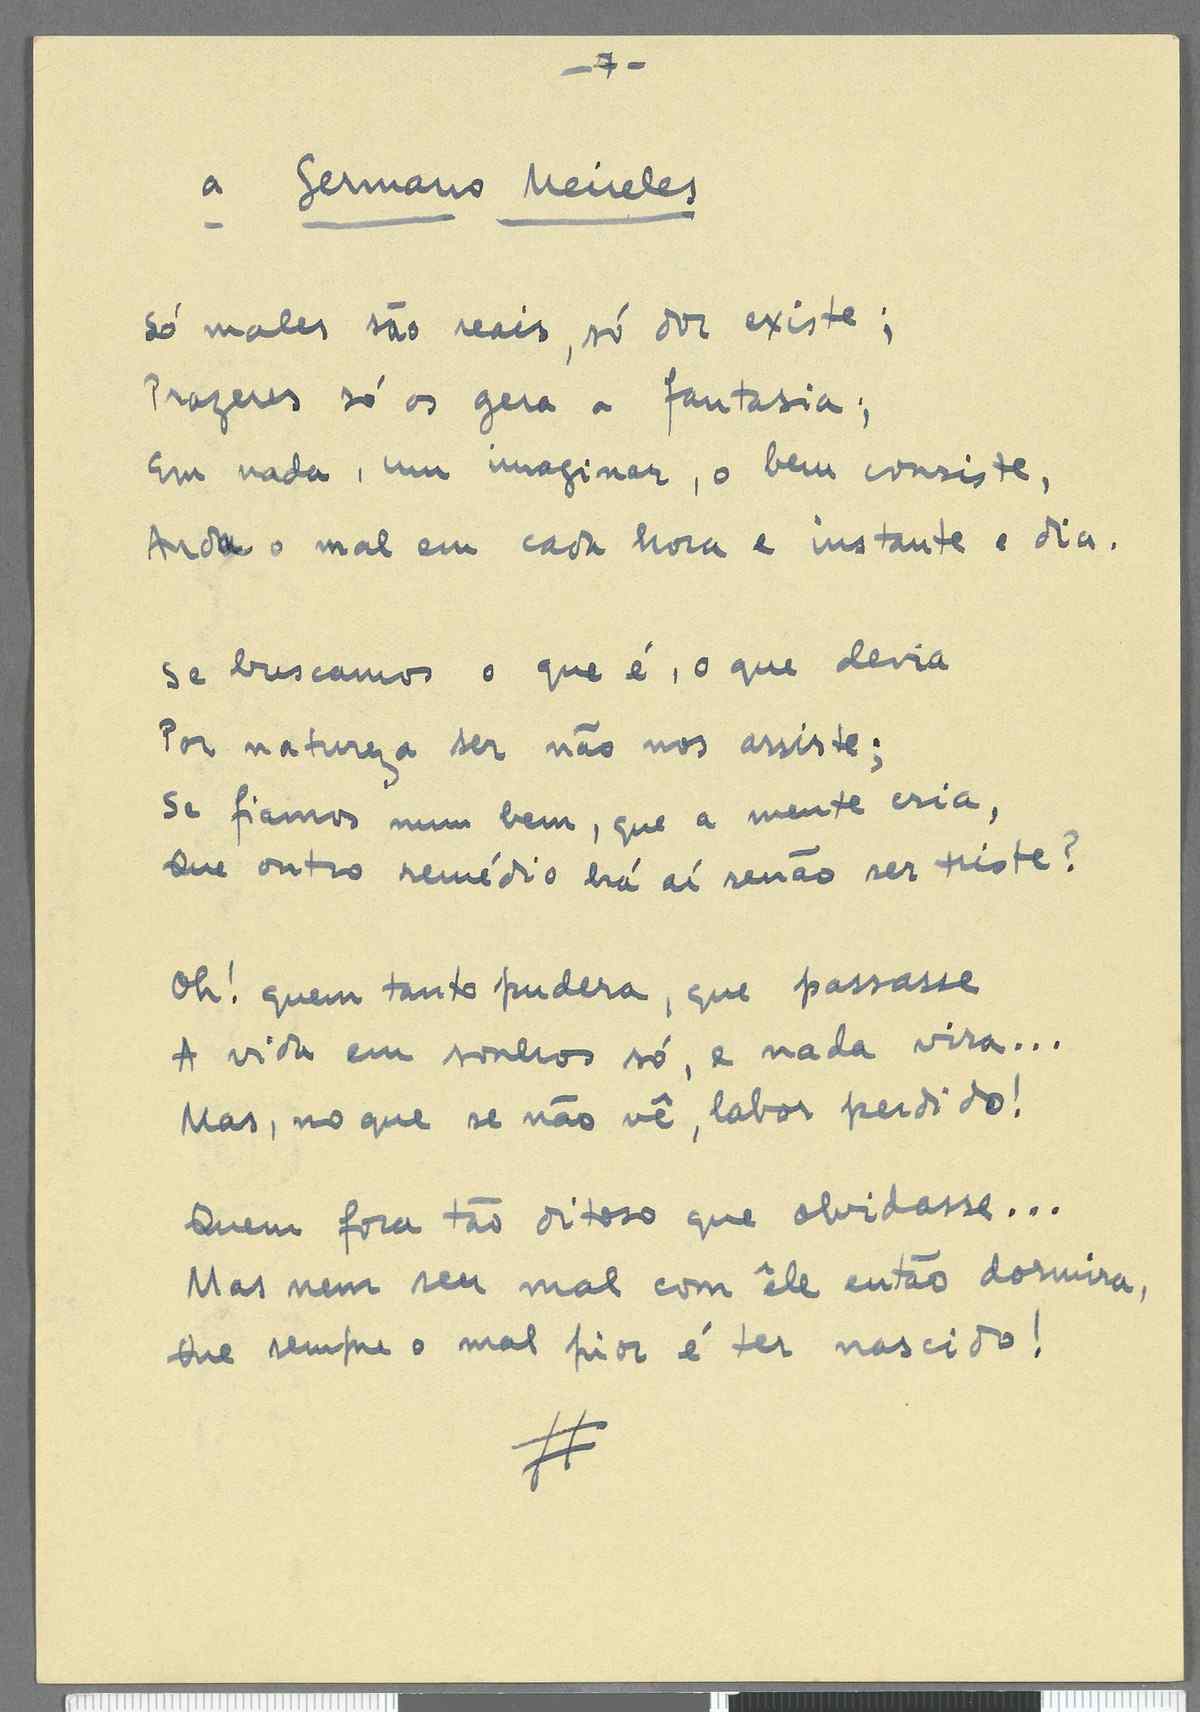 -7-
a Germano Meireles
Só males são reais, só dor existe;
Prazeres só os gera a fantasia;
Em nada, um imaginar, o bem consiste,
Anda o mal em cada hora e instante e dia.
Se buscamos o que é, o que devia
Por natureza ser não nos assiste;
Se fiamos num bem, que a mente cria,
Que outro remédio há aí senão ser triste?
Oh! quem tanto pudera, que passasse
A vida em sonhos só, e nada vira...
Mas, no que se não vê, labor perdido!
Quem fora tão ditoso que olvidasse...
Mas nem seu mal com êle então dormira,
Que sempre o mal pior é ter nascido!
#